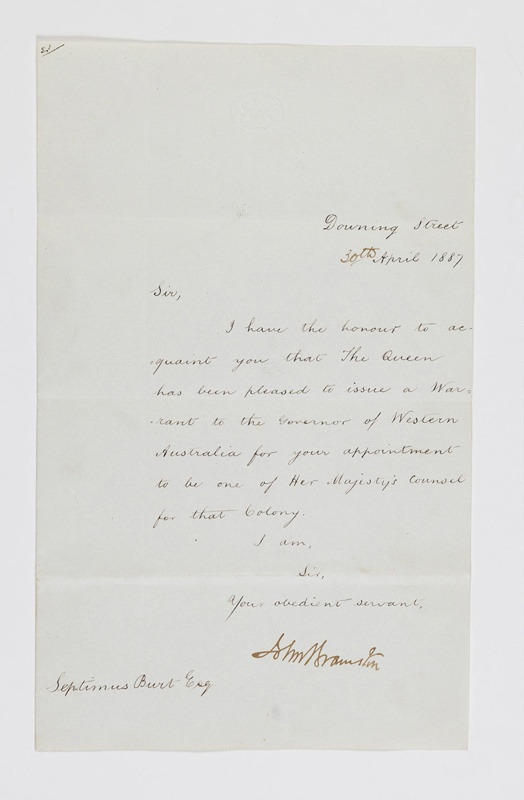 Downing Street
30th April 1887
Sir,
I have the honour to ac-
quaint you that The Queen
has been pleased to issue a War=
rant to the Governor of Western
Australia for your appointment
to be one of Her Majesty's Counsel
for that Colony.
I am,
Sir,
Your obedient servant,
John Bramston
Septimus Burt Esq